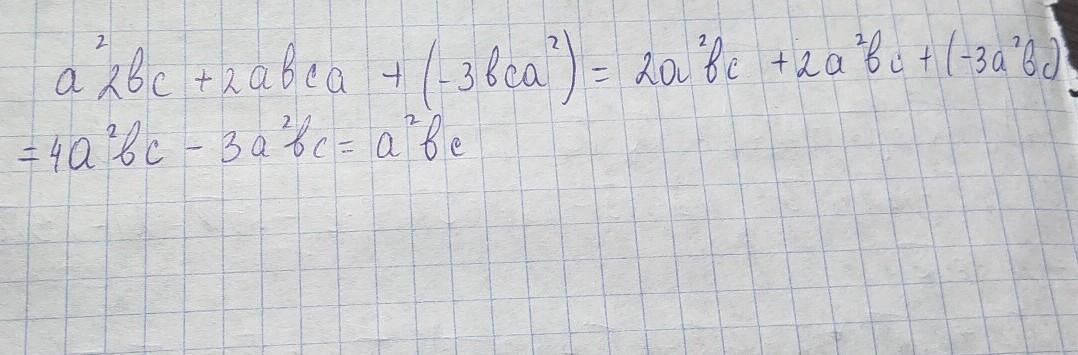 a²2bc + 2abca + (-3bca²) = 2a²bc + 2a²bc + (-3a²bc)
= 4a²bc - 3a²bc = a²bc